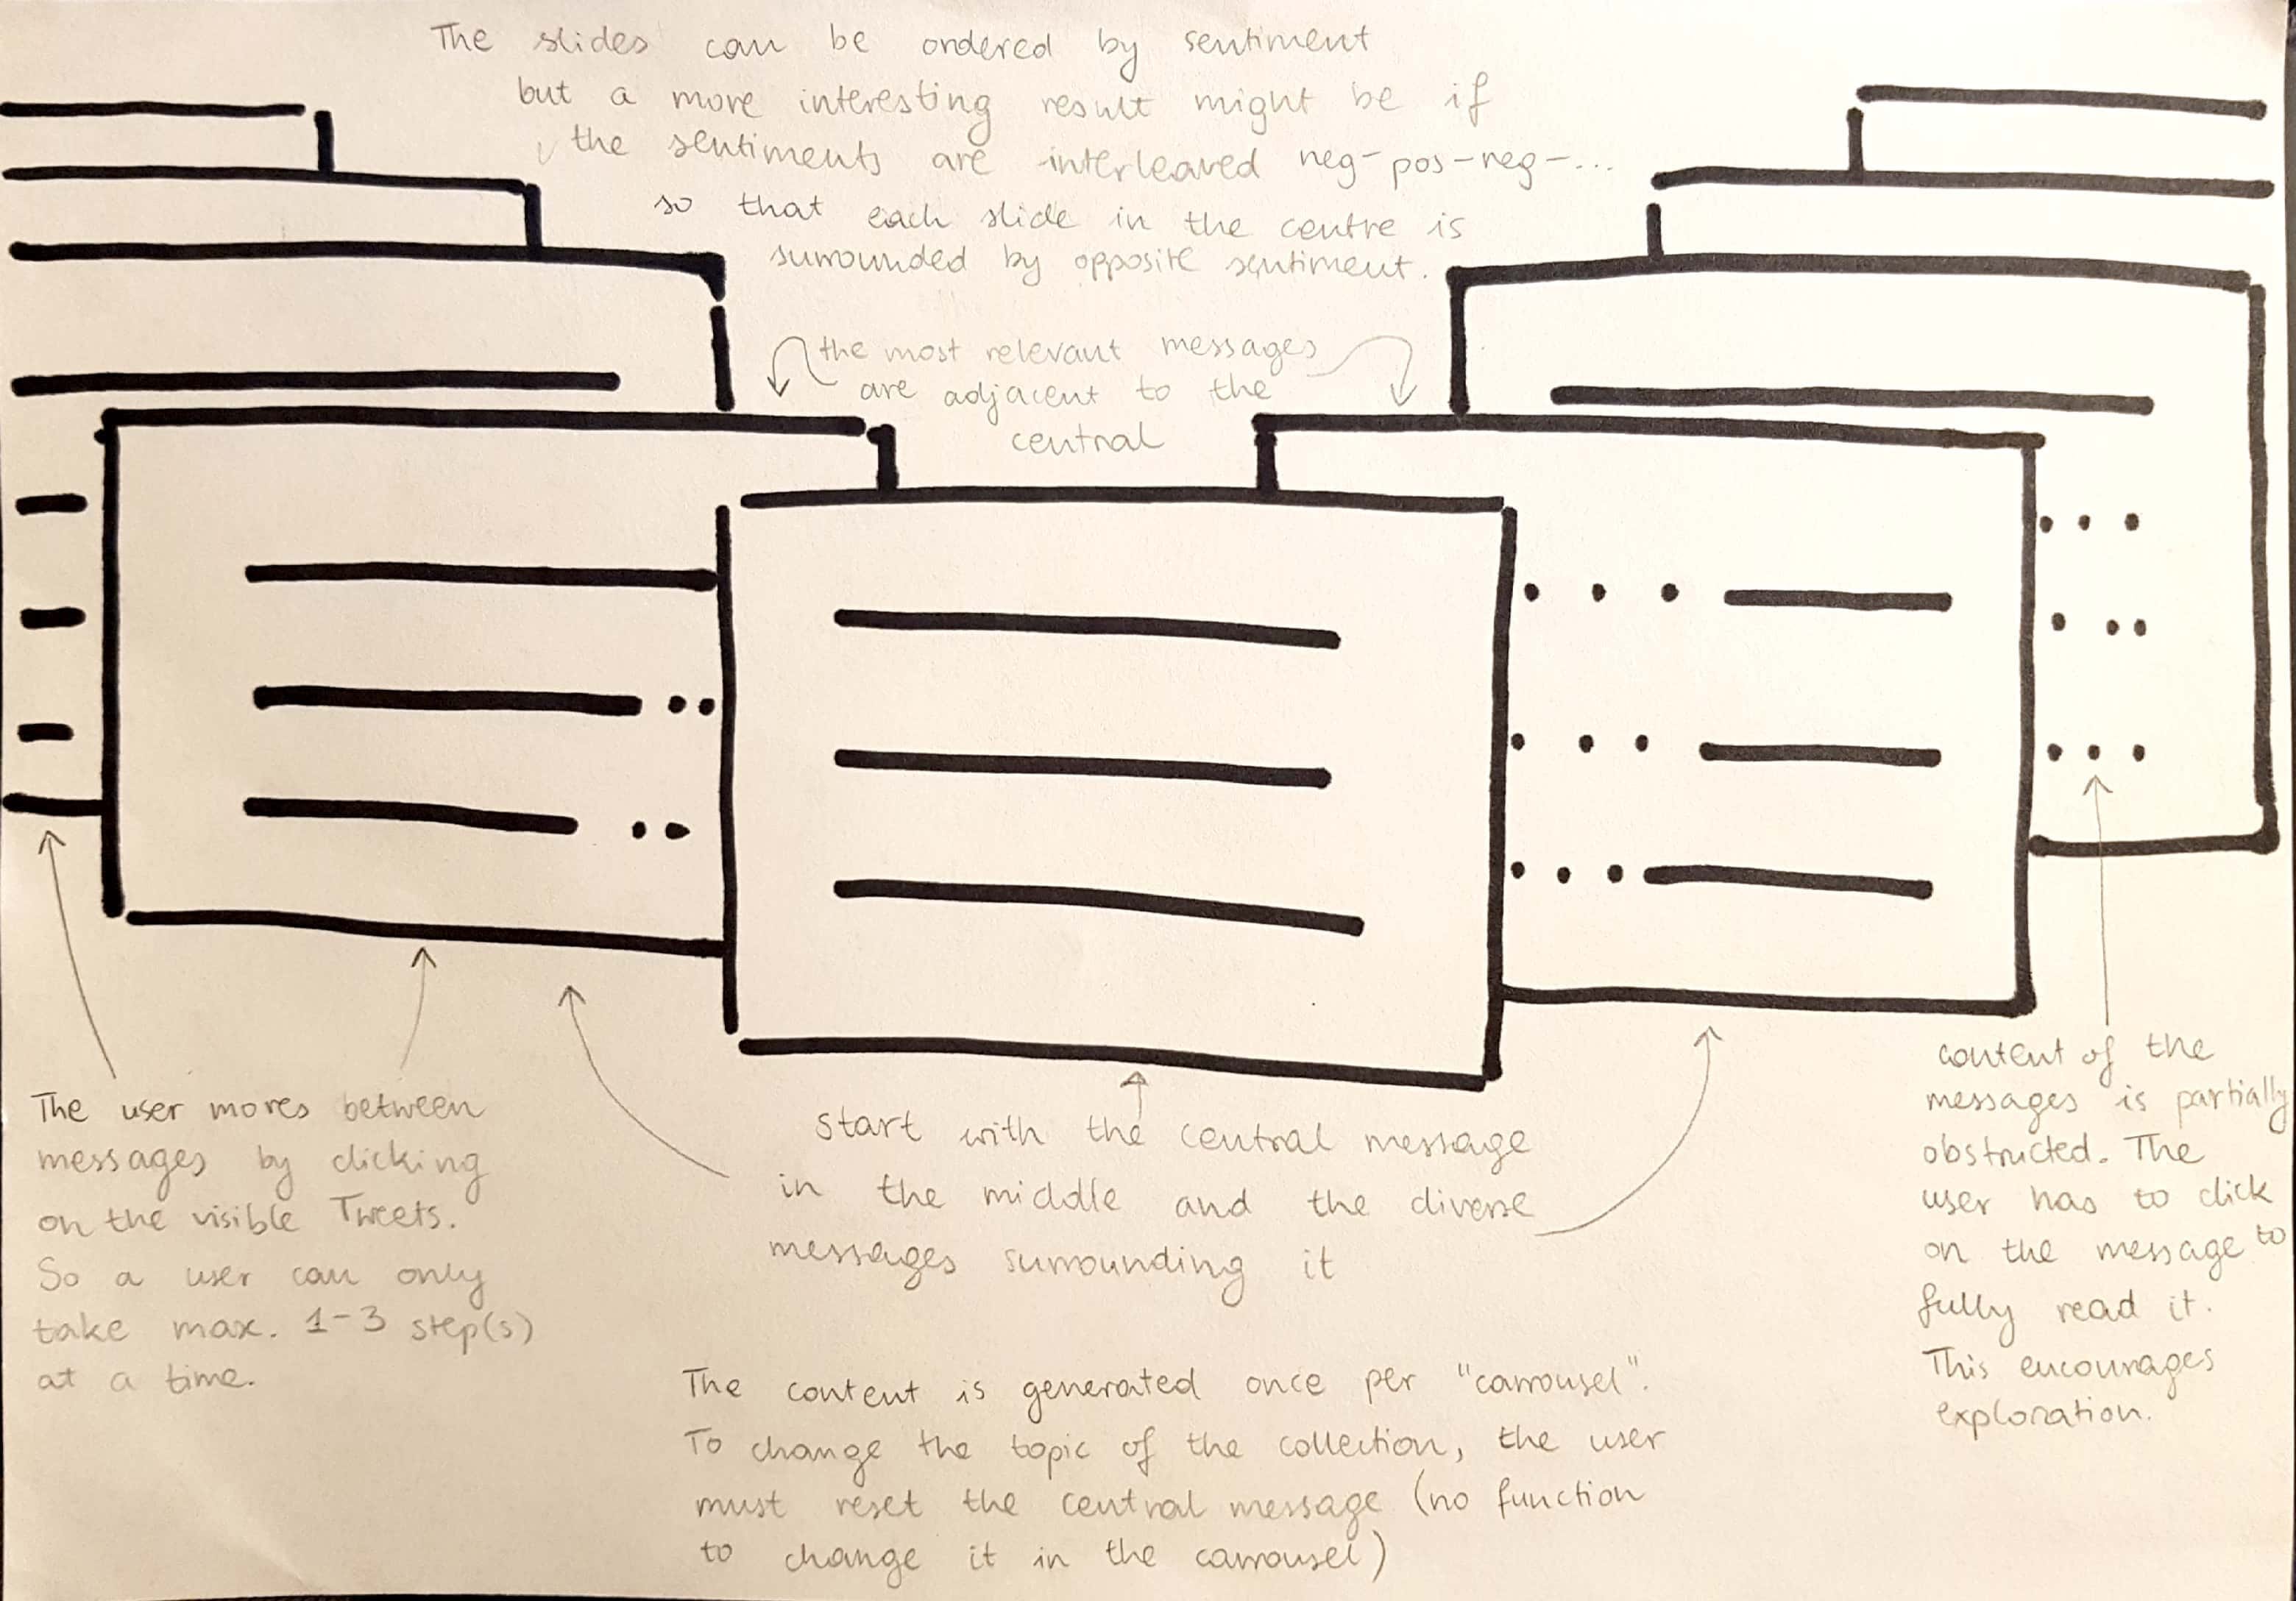 The slides can be ordered by sentiment
but a more interesting result might be if
the sentiments are interleaved neg-pos-neg-...
so that each slide in the centre is
surrounded by opposite sentiment.
the most relevant messages
are adjacent to the
central
The user moves between
messages by clicking
on the visible Tweets.
So a user can only
take max. 1-3 step(s)
at a time.
start with the central message
in the middle and the diverse
messages surrounding it
content of the
messages is partially
obstructed. The
user has to click
on the message to
fully read it.
This encourages
exploration.
The content is generated once per "carrousel".
To change the topic of the collection, the user
must reset the central message (no function
to change it in the carrousel)